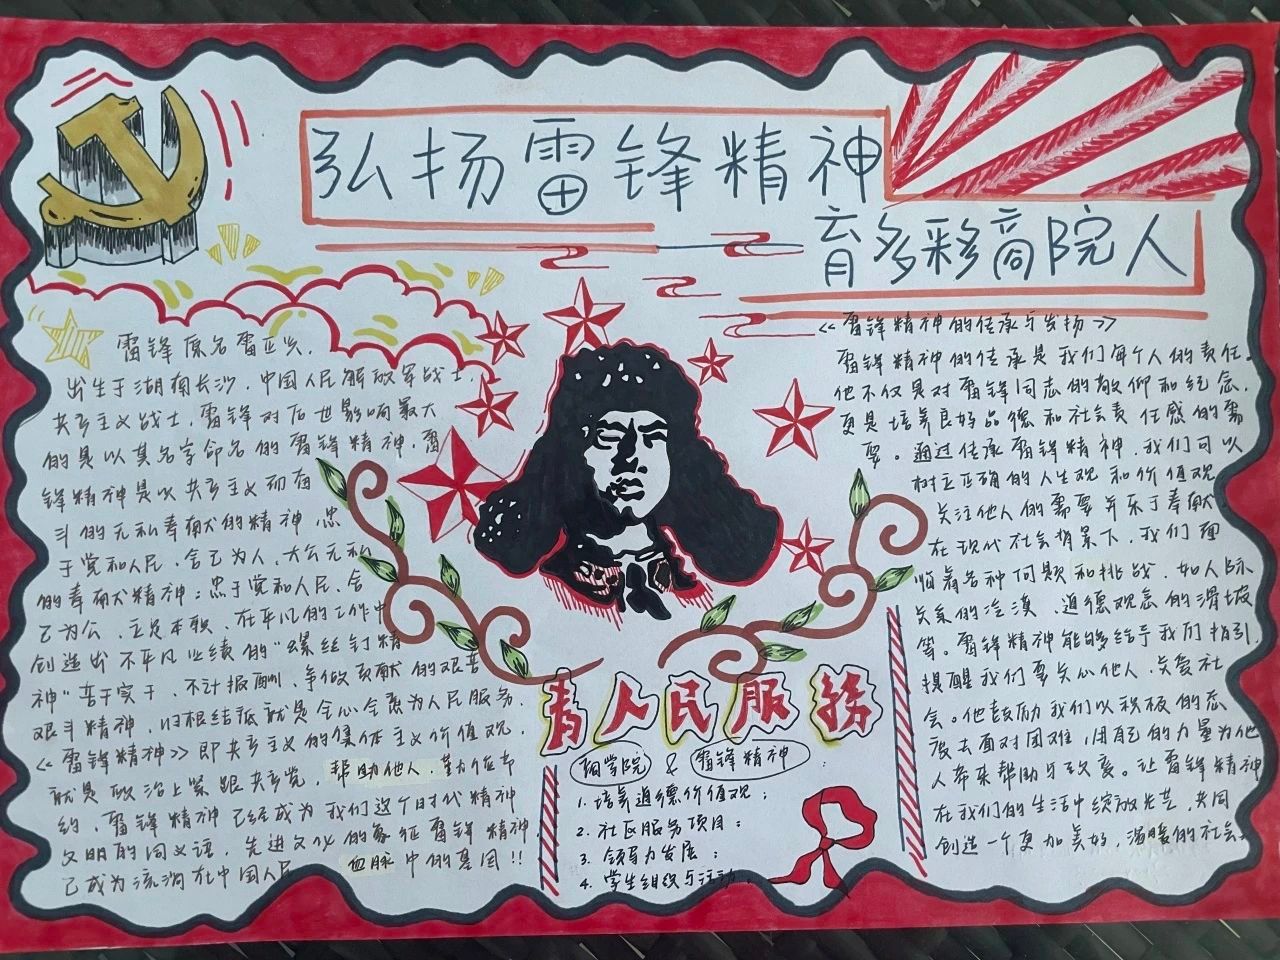 弘扬雷锋精神
育多彩商院人
雷锋原名雷正兴,
出生于湖南长沙,中国人民解放军战士,
共产主义战士,雷锋对后世影响最大
的是以其名字命名的雷锋精神,雷
锋精神是以共产主义而奋
斗的无私奉献的精神,忠
于党和人民,舍己为人,大公无私
的奉献精神;忠于党和人民、舍
己为公,立足本职、在平凡的工作中
创造出不平凡业绩的"螺丝钉精
神"苦干实干、不计报酬、争做贡献的艰苦
艰斗精神,归根结底就是全心全意为人民服务.
《雷锋精神》即共产主义的集体主义价值观.
就是政治上紧跟共产党,帮助他人,勤俭节
约,雷锋精神已经成为我们这个时代精神
文明的同义语,先进文化的象征雷锋精神,
已成为流淌在中国人民血脉中的基因!!
《雷锋精神的传承与发扬》
雷锋精神的传承是我们每个人的责任。
他不仅是对雷锋同志的敬仰和纪念,
更是培养良好品德和社会责任感的需
要。通过传承雷锋精神,我们可以
树立正确的人生观和价值观
关注他人的需要并乐于奉献.
在现代社会背景下,我们面
临着各种问题和挑战,如人际
关系的冷漠、道德观念的滑坡
等。雷锋精神能够给予我们指引,
提醒我们要关心他人,关爱社
会。他鼓励我们以积极的态
度去面对困难,用自己的力量为他
人带来帮助与改变。让雷锋精神
在我们的生活中绽放光芒,共同
创造一个更加美好,温暖的社会。
人民服务
商学院 & 雷锋精神:
1.培养道德价值观;
2.社区服务项目;
3.领导力发展;
4.学生组织与活动.